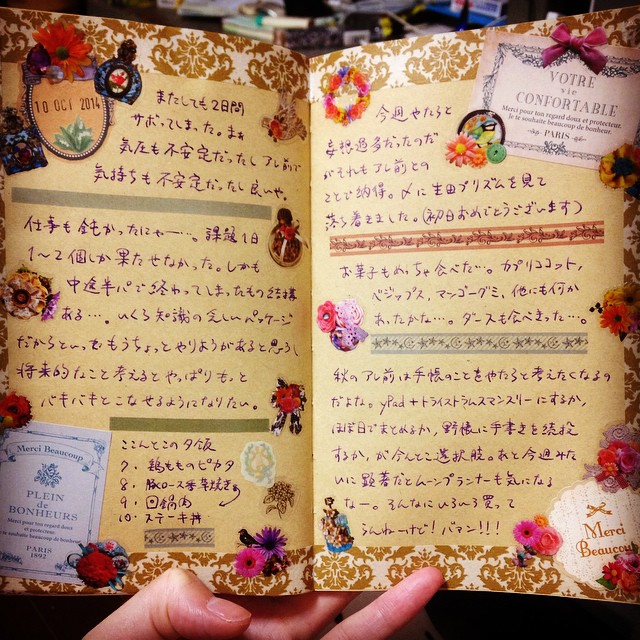 10 OCT 2014
またしても2日間
サボってしまった。まぁ
気圧も不安定だったし アレ前で
気持ちも不安定だったし 良いや。
仕事も鈍かったにゃー…。課題1日
1〜2個しか果たせなかった。しかも
中途半パで終わってしまったもの結構
ある…。いくら知識の乏しいパッケージ
だからといってももうちょっとやりようがあると思うし
将来的なこと考えるとやっぱりもっと
バキバキとこなせるようになりたい。
ここんとこの夕飯
7. 鶏もものピカタ
8. 豚ロース香草焼き
9. 回鍋肉
10. ステーキ丼
Merci Beaucoup
PLEIN
DE
BONHEURS
Merci pour ton regard
doux et protecteur.
Je te souhaite
beaucoup de bonheur.
PARIS
1892
今週やたらと
妄想過多だったのだ
がそれもアレ前との
ことで納得。〆に生田プリズムを見て
落ち着きました。(初日おめでとうございます)
お菓子もめちゃ食べた…。カプリココット,
ベジップス, マンゴーグミ, 他にも何か
あったかな…。ダースも食べきった…。
秋のアレ前は手帳のことをやたらと考えたくなるの
だよな。yPad+トライストラムスマンスリーにするか,
ほぼ日でまとめるか, 野帳に手書きを続投
するか, が今んとこ選択肢。あと今週みた
いに顕著だとムーンプランナーも気になる
なー。そんなにいろいろ買って
うんねーけど! バァン!!!
VOTRE
vie
CONFORTABLE
Merci pour ton regard doux et protecteur.
Je te souhaite beaucoup de bonheur.
PARIS
Merci
Beaucoup